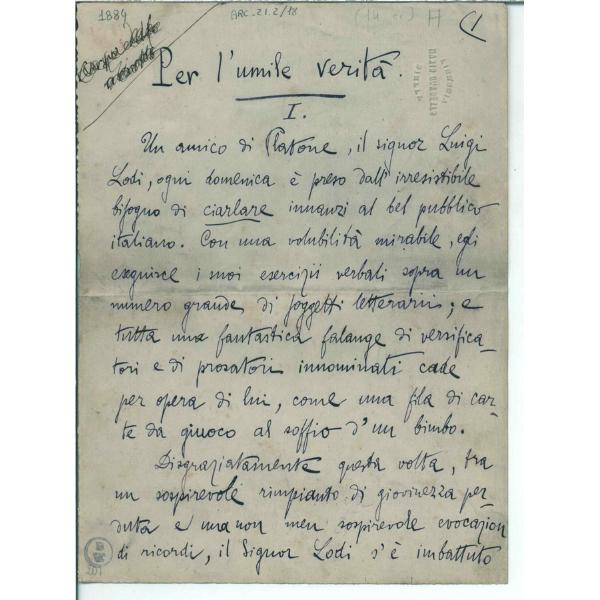 1889
ARC.21.2/18
Per l'umile verità.
I.
Un amico di Platone, il signor Luigi
Lodi, ogni domenica è preso dall'irresistibile
bisogno di ciarlare innanzi al bel pubblico
italiano. Con una volubilità mirabile, egli
eseguisce i suoi esercizii verbali sopra un
numero grande di soggetti letterarii; e
tutta una fantastica falange di versifica-
tori e di prosatori innominati cade
per opera di lui, come una fila di car-
te da giuoco al soffio d'un bimbo.
Disgraziatamente questa volta, tra
un sospirevole rimpianto di giovinezza per-
duta e una non men sospirevole evocazion
di ricordi, il Signor Lodi s'è imbattuto